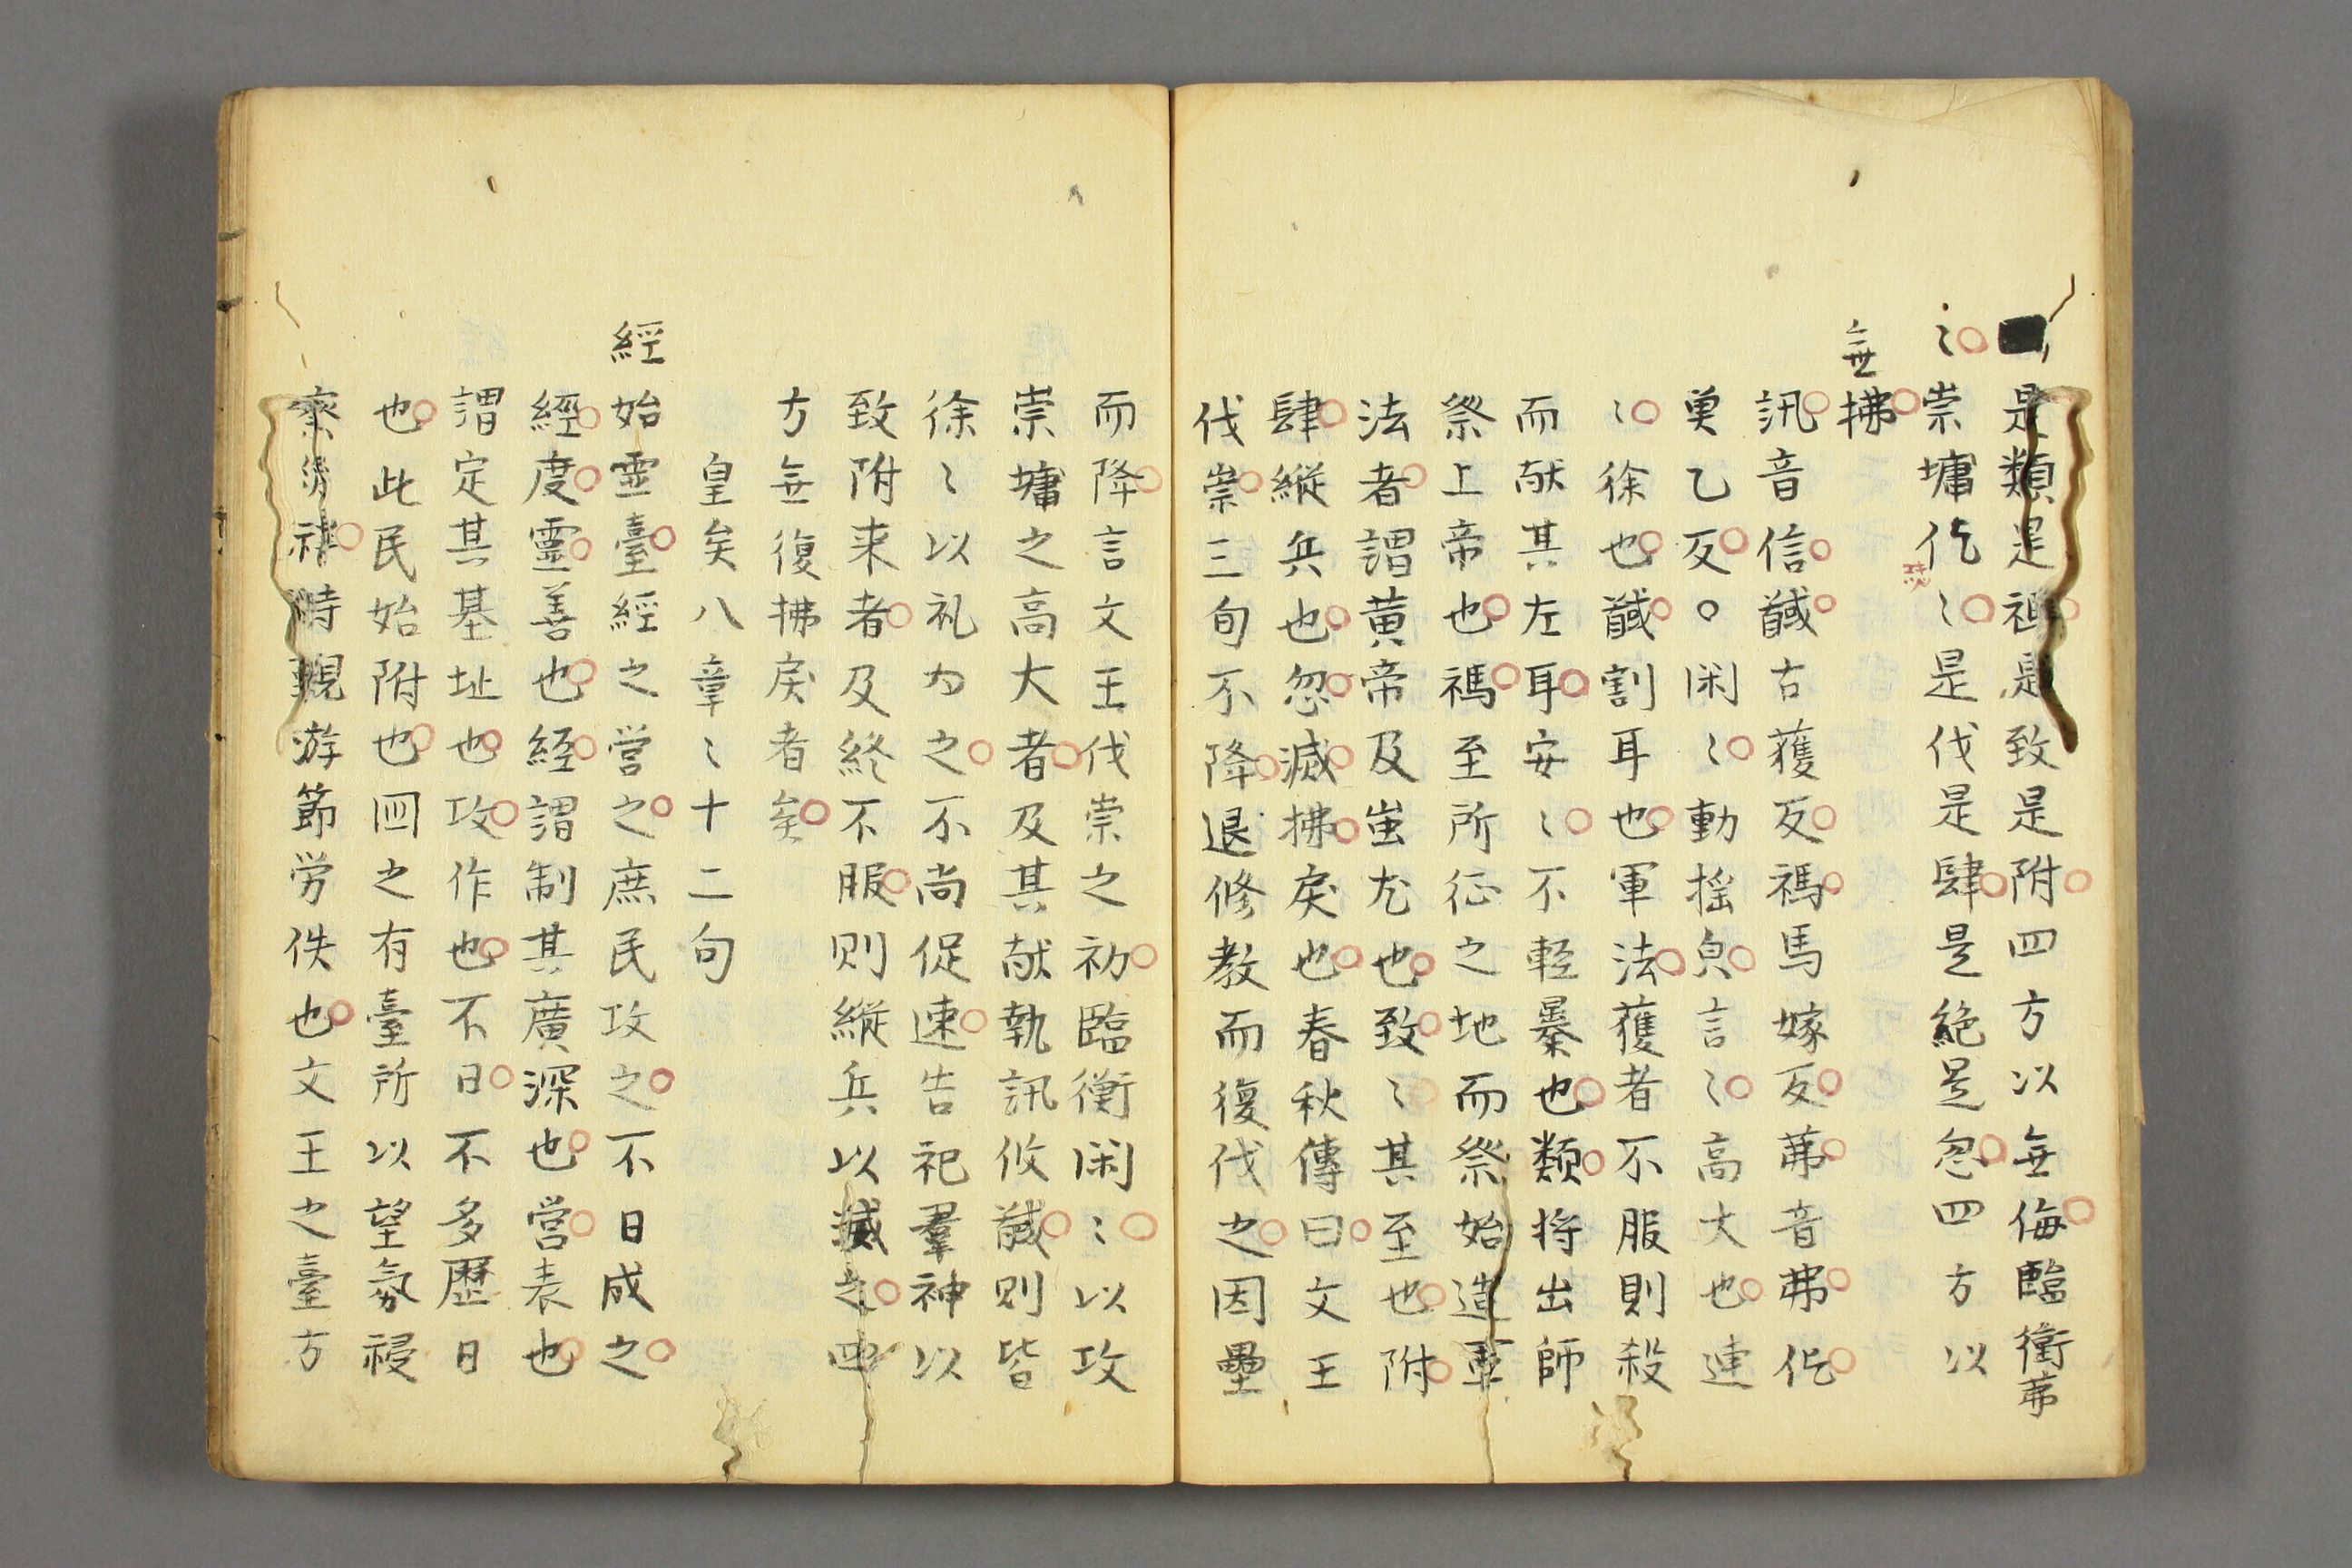 是類是禡是致是附四方以無侮臨衝茀
〻崇墉仡〻是伐是肆是絶是忽四方以
無拂
訊音信馘古獲反禡馬嫁反茀音弗仡
魚乙反○閑〻動揺皃言〻高大也連
〻徐也馘割耳也軍法獲者不服則殺
而献其左耳安〻不軽暴也類将出師
祭上帝也禡至所征之地而祭始造軍
法者謂黄帝及蚩尤也致〻其至也附
肆縦兵也忽滅拂戻也春秋傳曰文王
伐崇三旬不降退修教而復伐之因壘
而降言文王伐崇之初臨衝閑〻以攻
崇墉之高大者及其献執訊攸馘則皆
徐〻以礼為之不尚促速告祀羣神以
致附来者及終不服則縦兵以滅之四
方無復拂戻者矣
皇矣八章〻十二句
經始霊臺經之営之庶民攻之不日成之
經度霊善也経謂制其廣深也営表也
謂定其基址也攻作也不日不多歴日
也此民始附也囯之有臺所以望氛祲
察祲時觀游節労佚也文王之臺方